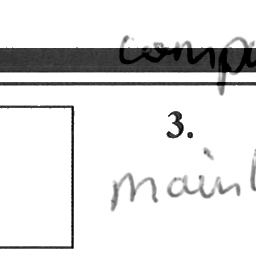 comp
3.
main